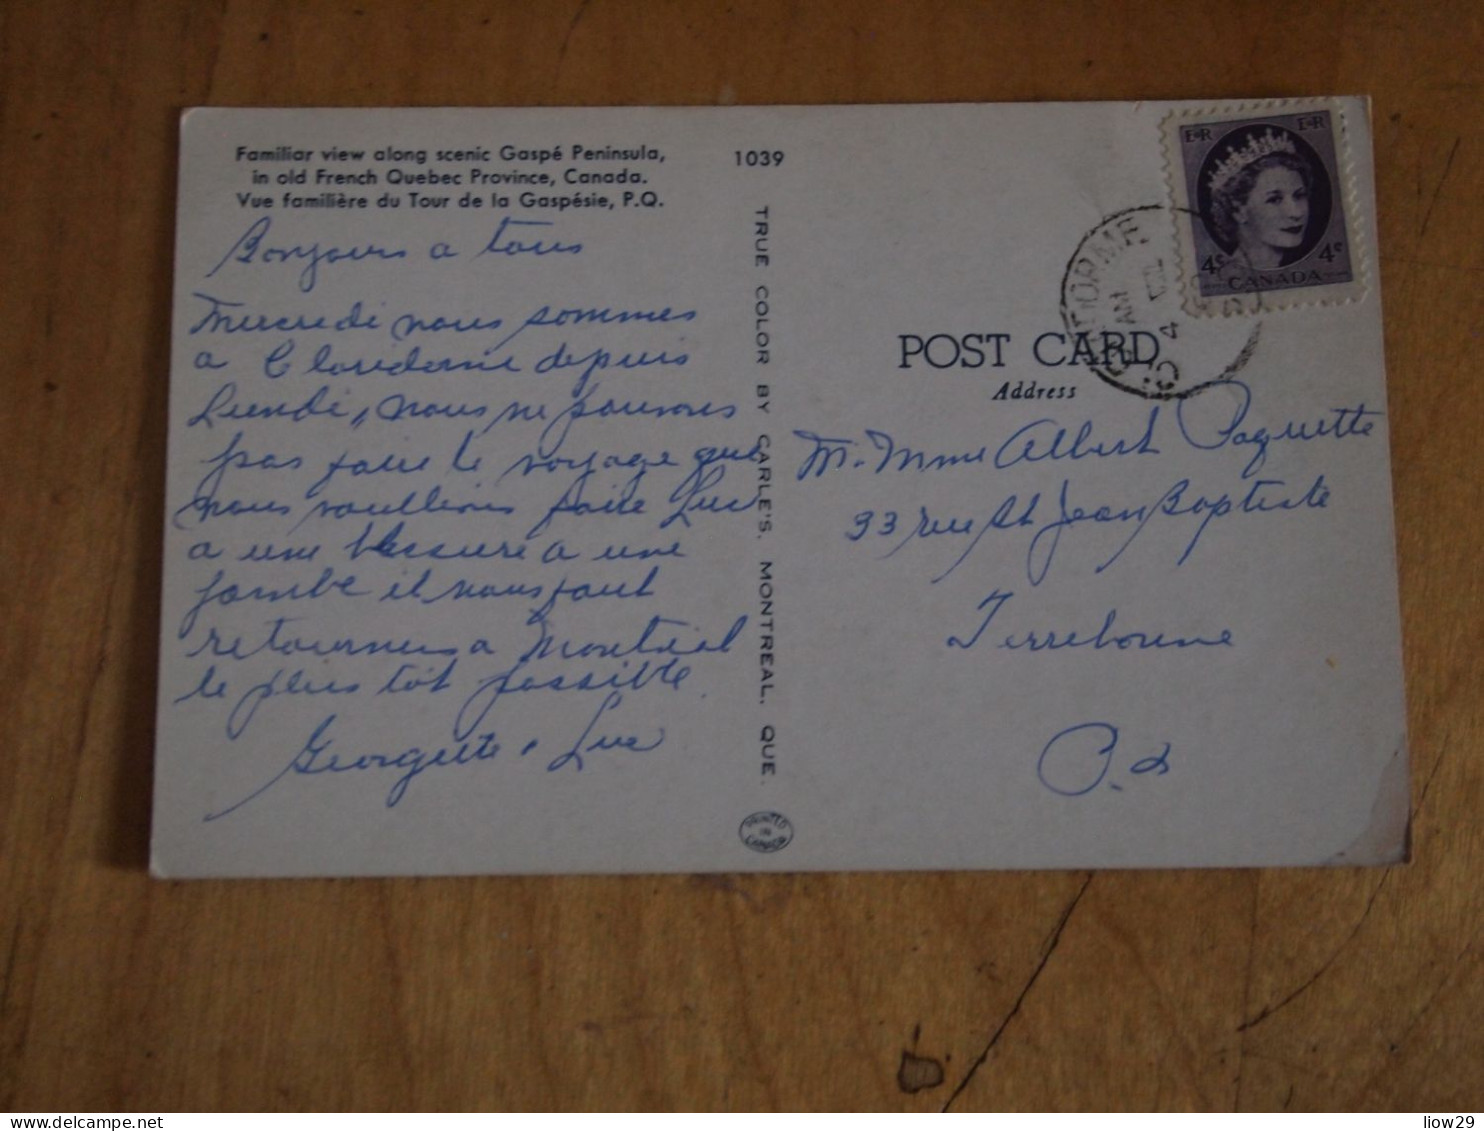 Familiar view along scenic Gaspé Peninsula,
in old French Quebec Province, Canada.
Vue familière du Tour de la Gaspésie, P.Q.
1039
Bonjours a tous
Mercredi nous sommes
a Cloridorme depuis
Lundi, nous ne pouvons
pas faire le voyage que
nous voullions faire Luc
a une blessure a une
jambe il nous faut
retourner a Montréal
le plus tôt possible.
Georgette + Luc
TRUE COLOR BY CARLE'S. MONTREAL. QUE.
PRINTED
IN
CANADA
E R
E R
4c
4c
CANADA
CLORIDORME
AM
4
POST CARD
Address
M. Mme Albert Paquette
33 rue St Jean Baptiste
Terrebonne
P. Q
delcampe.net
liow29